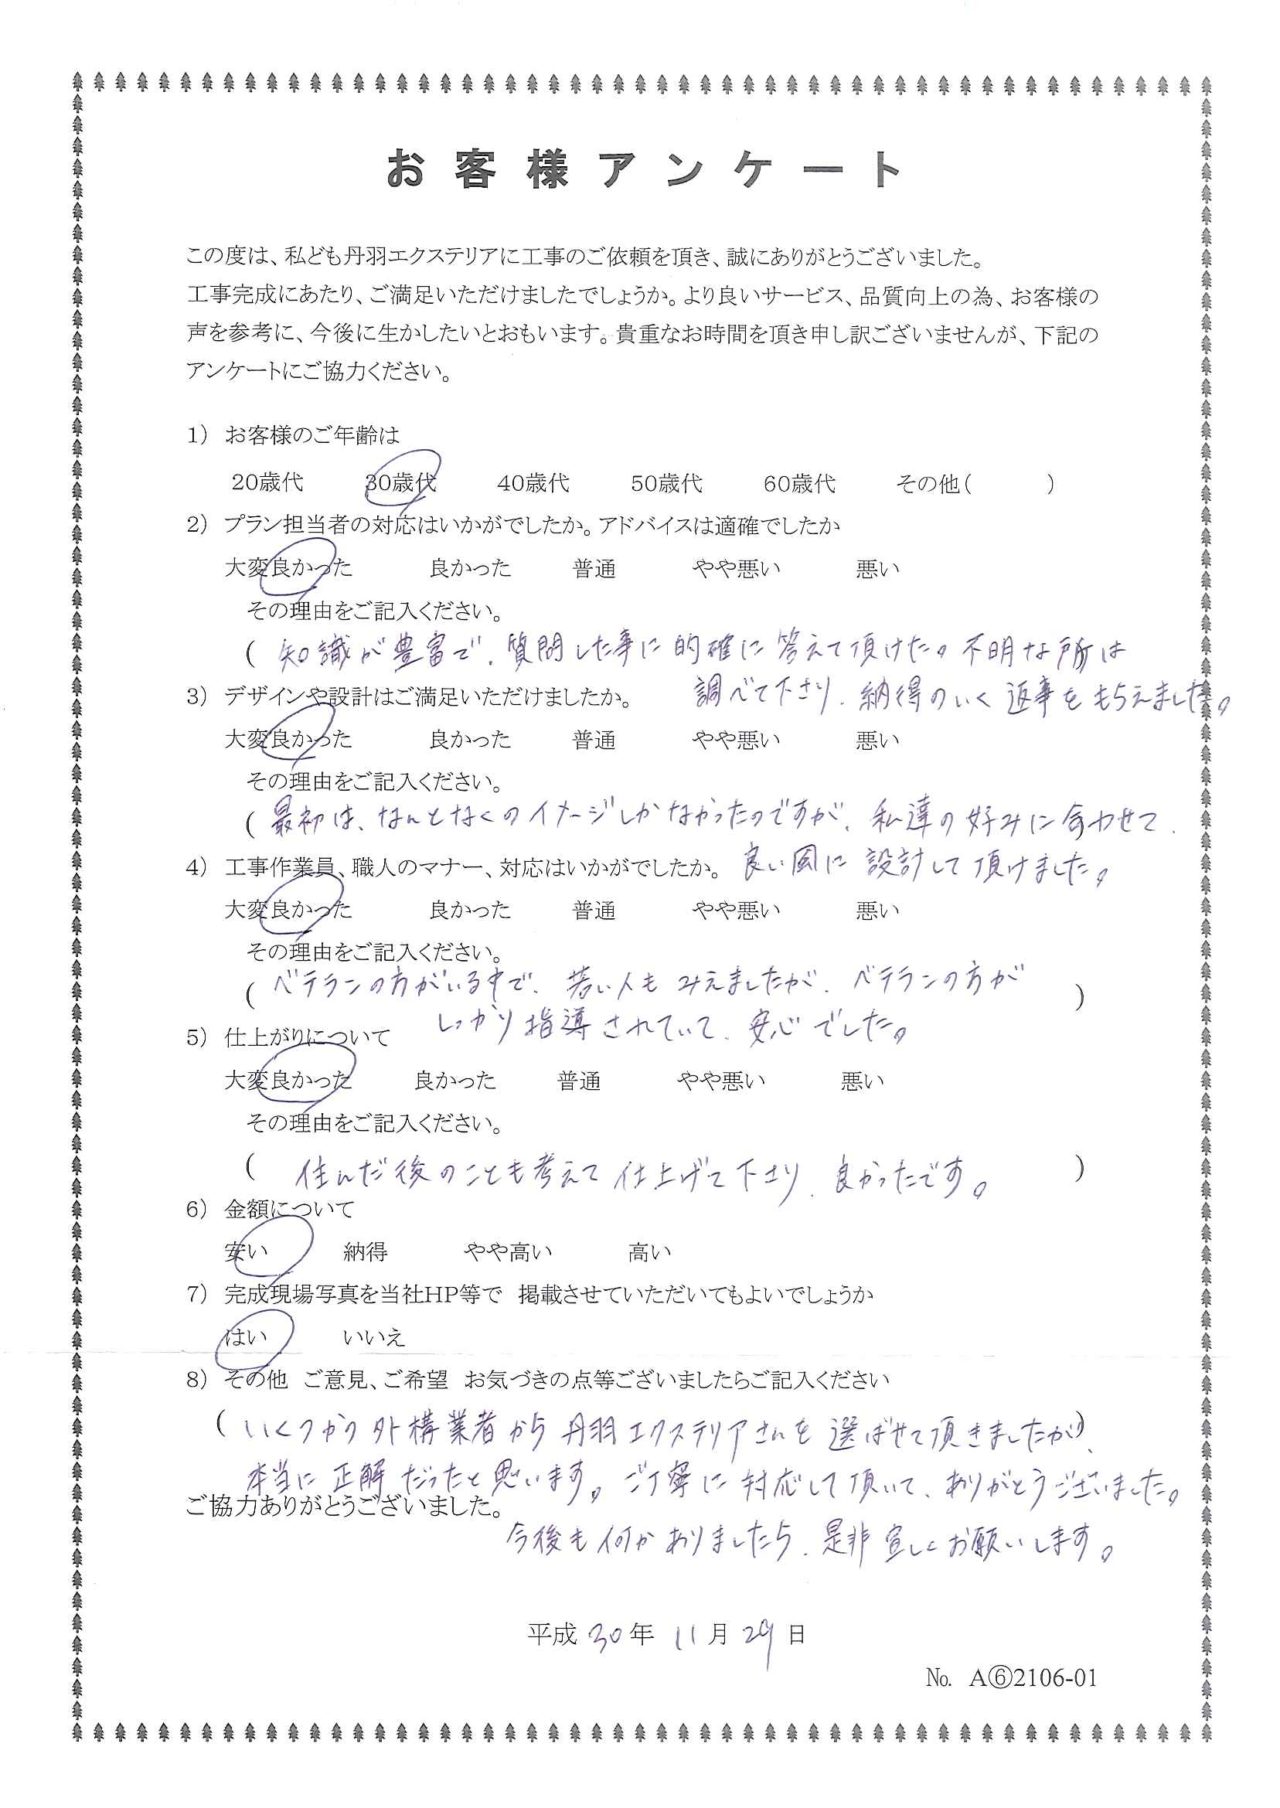 お客様アンケート
この度は、私ども丹羽エクステリアに工事のご依頼を頂き、誠にありがとうございました。
工事完成にあたり、ご満足いただけましたでしょうか。より良いサービス、品質向上の為、お客様の
声を参考に、今後に生かしたいとおもいます。貴重なお時間を頂き申し訳ございませんが、下記の
アンケートにご協力ください。
1） お客様のご年齢は
20歳代 30歳代 40歳代 50歳代 60歳代 その他( )
2） プラン担当者の対応はいかがでしたか。アドバイスは適確でしたか
大変良かった 良かった 普通 やや悪い 悪い
その理由をご記入ください。
( 知識が豊富で、質問した事に的確に答えて頂けた。不明な所は
調べて下さり、納得のいく返事をもらえました。
3） デザインや設計はご満足いただけましたか。
大変良かった 良かった 普通 やや悪い 悪い
その理由をご記入ください。
( 最初は、なんとなくのイメージしかなかったのですが、私達の好みに合わせて、
良い風に設計して頂けました。
4） 工事作業員、職人のマナー、対応はいかがでしたか。
大変良かった 良かった 普通 やや悪い 悪い
その理由をご記入ください。
( ベテランの方がいる中で、若い人もみえましたが、ベテランの方が )
しっかり指導されていて、安心でした。
5） 仕上がりについて
大変良かった 良かった 普通 やや悪い 悪い
その理由をご記入ください。
( 住んだ後のことも考えて仕上げて下さり、良かったです。 )
6） 金額について
安い 納得 やや高い 高い
7） 完成現場写真を当社HP等で 掲載させていただいてもよいでしょうか
はい いいえ
8） その他 ご意見、ご希望 お気づきの点等ございましたらご記入ください
( いくつかの外構業者から丹羽エクステリアさんを選ばせて頂きましたが、)
本当に正解だったと思います。ご丁寧に対応して頂いて、ありがとうございました。
ご協力ありがとうございました。
今後も何かありましたら、是非宜しくお願いします。
平成 30年 11月 29日
№ A⑥2106-01